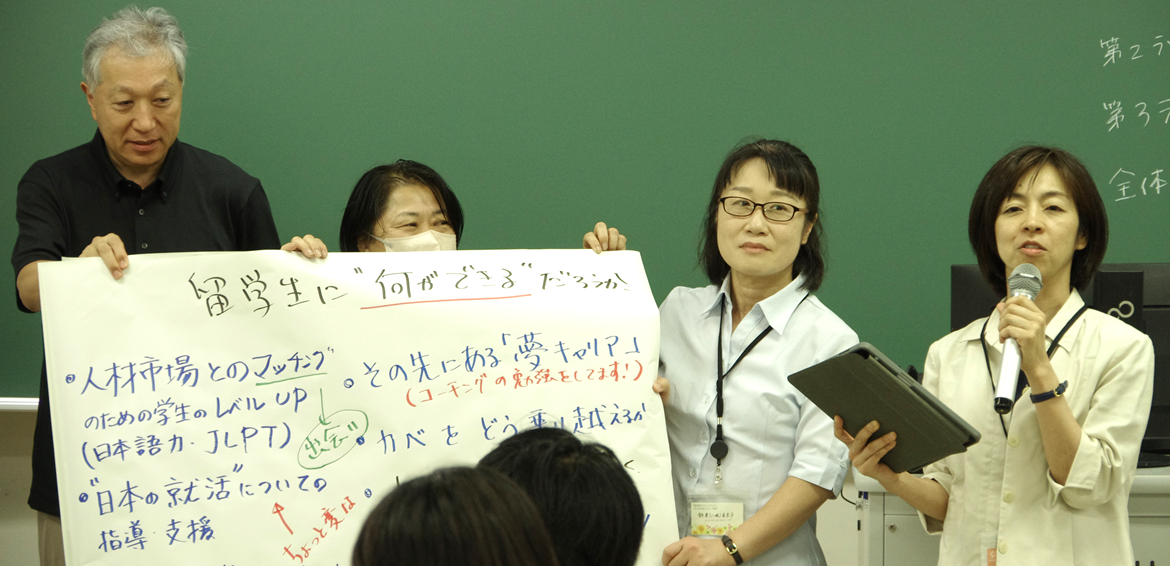 留学生に"何ができる"だろうか!
・人材市場とのマッチング
のための学生のレベルUP
(日本語力・JLPT)
出会い
・"日本の就活"についての
指導・支援
ちょっと変な
・その先にある「夢・キャリア」
(コーチングの勉強をしてます!)
・カベをどう乗り越えるか
第2ラ
第3ラ
全体